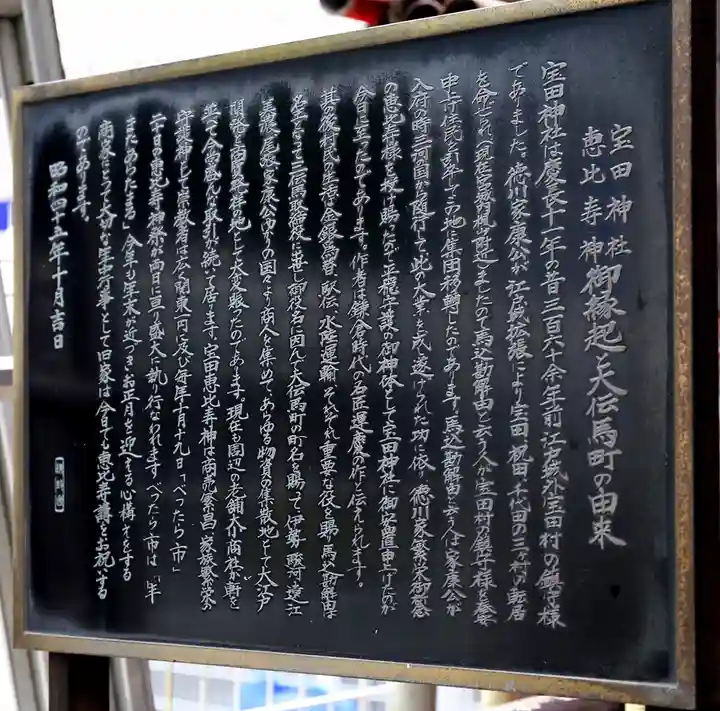 宝田神社
恵比寿神
御縁起と大伝馬町の由来
宝田神社は慶長十一年の昔三百六十余年前江戸城外宝田村の鎮守様
でありました。徳川家康公が江戸城拡張により宝田、祝田、千代田の三ヶ村の転居
を命ぜられ(現在皇居楓山附近)ましたので馬込勘解由と云う人が宝田村の鎮守様を奉安
申上げ住民を引率してこの地に集団移転したのであります。馬込勘解由と云う人は家康公が
入府の時三河国から随行して此の大業を成し遂げられた功に依り、徳川家繁栄御祈念
の恵比寿様を授け賜わったので平穏守護の御神体として宝田神社に御安置申上げたのが
今日に至ったのであります。作者は鎌倉時代の名匠運慶の作と伝えられます。
其の後村民の生活は金銀為替、駅伝、水陸運輸、それぞれ重要な役を賜り馬込勘解由は
名主となって三伝馬取締役に出世し御役名に因んで大伝馬町の町名を賜って、伊勢、駿河、遠江
美濃、尾張、家康公ゆかりの国々より商人を集めて、あらゆる物資の集散地として大江戸
開発と商業経済の中心地として大変賑ったのであります。現在も周辺の老舗大小商社が軒を
並べて今尚盛んな取引が続いて居ります。宝田恵比寿神は商売繁昌、家族繁栄の
守護神として崇敬者は広く関東一円に及び毎年十月十九日「べったら市」
二十日の恵比寿神祭が両日に亘り盛大に執り行なわれます。べったら市は「年
またあらたまる」今年も年末が近づきお正月を迎える心構えをする
商家にとって大切な年中行事として旧家は今日でも恵比寿講をお祝いする
のであります。
昭和四十五年十月吉日